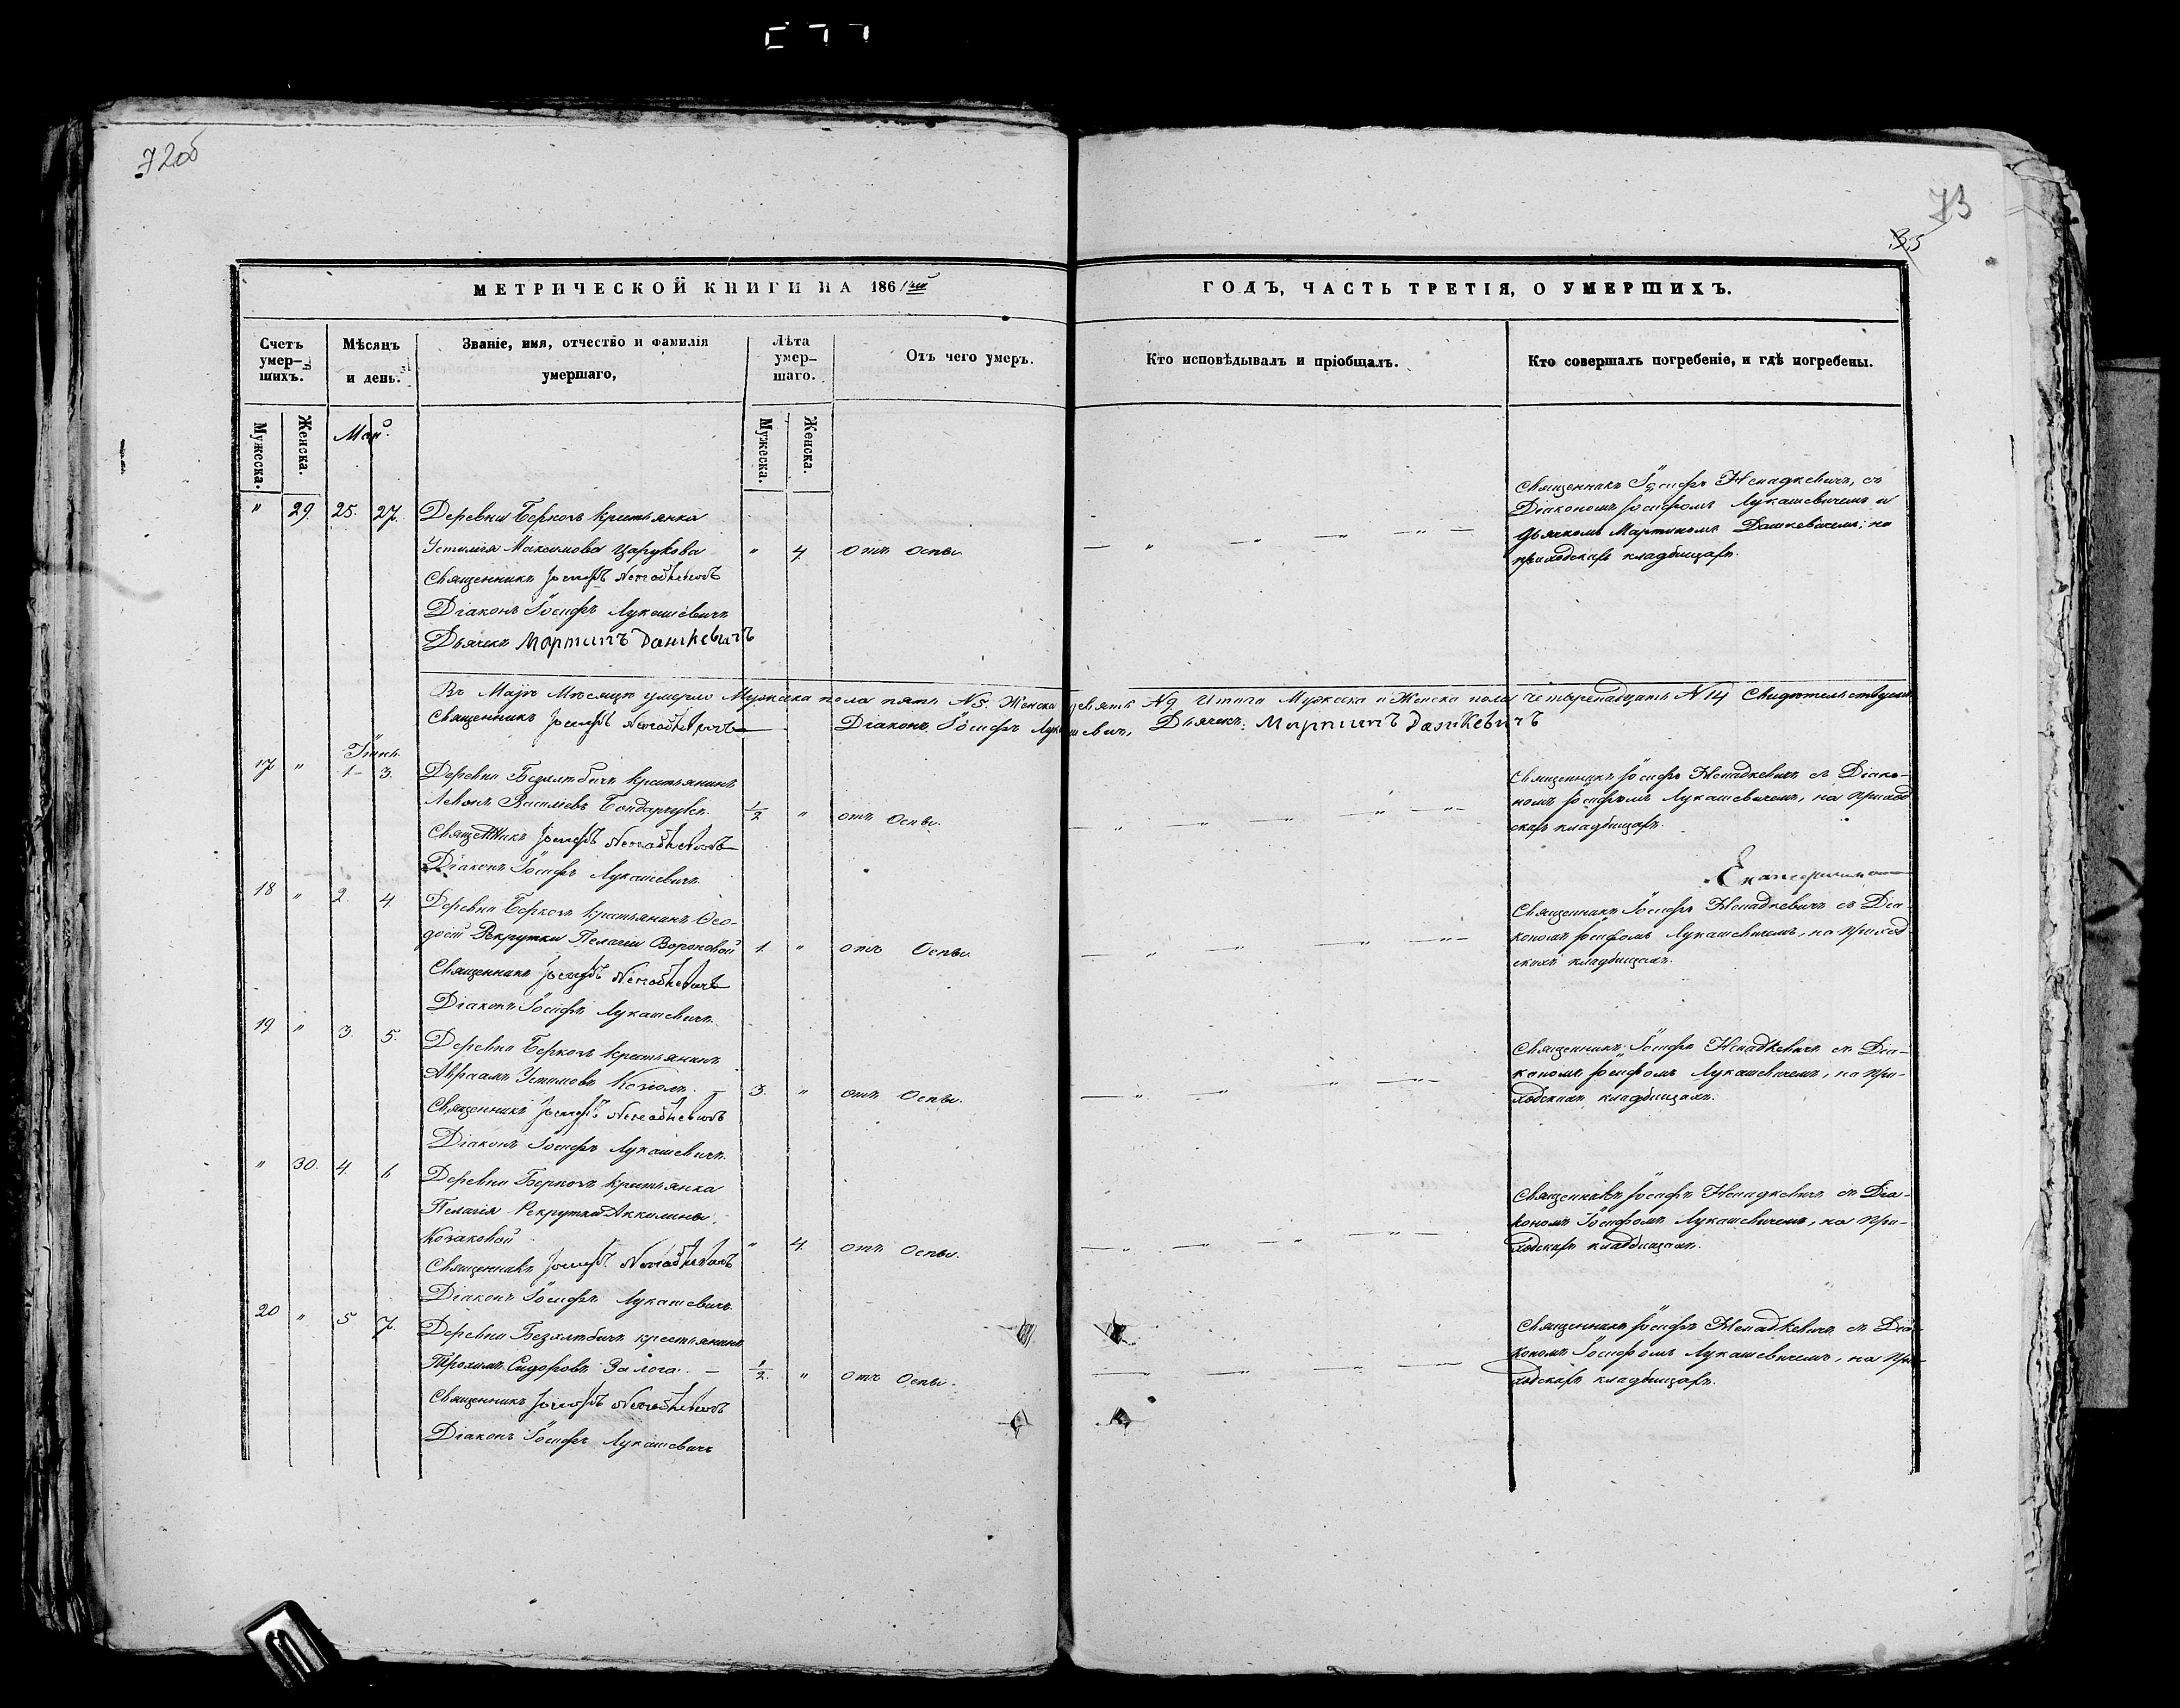 72об
73
35
МЕТРИЧЕСКОЙ КНИГИ НА 1861й
ГОДЪ, ЧАСТЬ ТРЕТІЯ, О УМЕРШИХЪ.
Счетъ умер-шихъ.
Мѣсяцъ и день.
Званіе, имя, отчество и фамилія умершаго,
Лѣта умер-шаго.
Отъ чего умеръ.
Кто исповѣдывалъ и пріобщалъ.
Кто совершалъ погребеніе, и гдѣ погребены.
Мужеска.
Женска.
Май.
Мужеска.
Женска.
" 29. 25. 27. Деревни Беркозъ крестьянка
Устинія Максимова Царукова " 4. отъ Оспы.
Священникъ Іосифъ Ненадкевичъ
Діаконъ Іосифъ Лукашевичъ
Дьячекъ Мартинъ Дашкевичъ
Священникъ Іосифъ Ненадкевичъ, съ
Діакономъ Іосифомъ Лукашевичемъ и
дьячкомъ Мартиномъ Дашкевичемъ; на
приходскихъ кладбищахъ.
Въ Маѣ Мѣсяцѣ умерло Мужеска пола пять N 5. Женска девять N 9 Итого Мужеска и Женска пола четыренадцать N 14 Свидѣтельствуемъ
Священникъ Іосифъ Ненадкевичъ Діаконъ Іосифъ Лукашевичъ, Дьячекъ: Мартинъ Дашкевичъ
Іюнь
17 " 1. 3. Деревни Безхлѣбичъ крестьянинъ
Левонъ Василіевъ Бондарчукъ. 1/2 " отъ Оспы.
Священникъ Іосифъ Ненадкевичъ
Діаконъ Іосифъ Лукашевичъ.
Священникъ Іосифъ Ненадкевичъ съ Діако-
номъ Іосифомъ Лукашевичемъ, на приход
скихъ кладбищахъ.
18 " 2. 4. Деревни Беркозъ крестьянинъ Ѳео-
досій Рекрутки Пелагіи Вороновой 1. " отъ Оспы.
Священникъ Іосифъ Ненадкевичъ
Діаконъ Іосифъ Лукашевичъ.
Священникъ Іосифъ Ненадкевичъ съ Діа-
кономъ Іосифомъ Лукашевичемъ, на приход-
скихъ кладбищахъ.
19 " 3. 5. Деревни Беркозъ крестьянинъ
Авраамъ Устимовъ 3. " отъ Оспы.
Священникъ Іосифъ Ненадкевичъ
Діаконъ Іосифъ Лукашевичъ.
Священникъ Іосифъ Ненадкевичъ съ Діа-
кономъ Іосифомъ Лукашевичемъ, на при-
ходскихъ кладбищахъ.
" 30. 4. 6 Деревни Беркозъ крестьянка
Пелагія Рекрутки Аккилины
Козаковой " 4. отъ Оспы.
Священникъ Іосифъ Ненадкевичъ
Діаконъ Іосифъ Лукашевичъ.
Священникъ Іосифъ Ненадкевичъ съ Діа-
кономъ Іосифомъ Лукашевичемъ, на при-
ходскихъ кладбищахъ.
20 " 5 7. Деревни Безхлѣбичъ крестьянинъ
Трохимъ Сидоровъ Залога. 1/2. " отъ Оспы.
Священникъ Іосифъ Ненадкевичъ
Діаконъ Іосифъ Лукашевичъ
Священникъ Іосифъ Ненадкевичъ съ Діа-
кономъ Іосифомъ Лукашевичемъ, на при-
ходскихъ кладбищахъ.